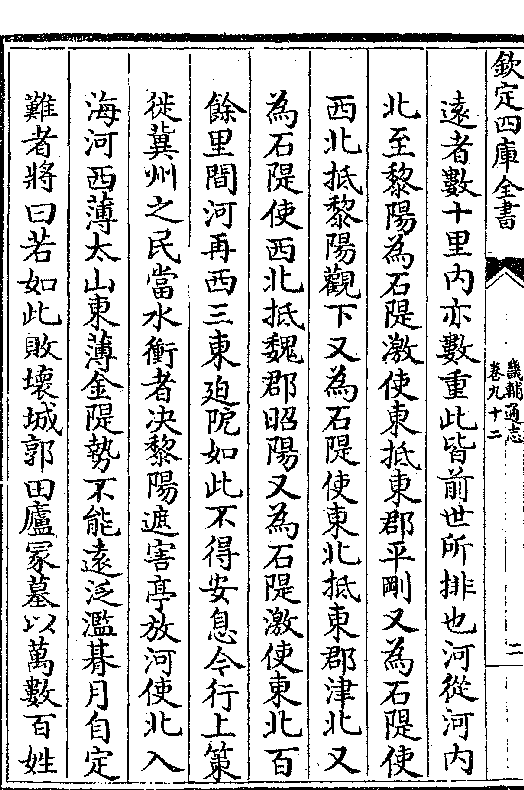 欽定四庫全書
畿輔通志
卷九十二
二
遠者數十里内亦數重此皆前世所排也河從河内
北至黎陽為石隄激使東抵東郡平剛又為石隄使
西北抵黎陽觀下又為石隄使東北抵東郡津北又
為石隄使西北抵魏郡昭陽又為石隄激使東北百
餘里間河再西三東迫阨如此不得安息今行上策
徙冀州之民當水衝者决黎陽遮害亭放河使北入
海河西薄太山東薄金隄勢不能遠泛濫朞月自定
難者將曰若如此敗壞城郭田廬冢墓以萬數百姓